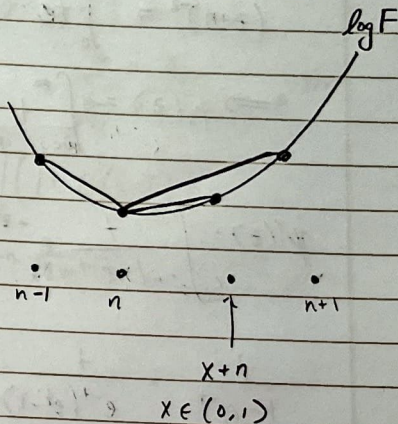 log F
n-1 n n+1
x+n
x ∈ (0,1)